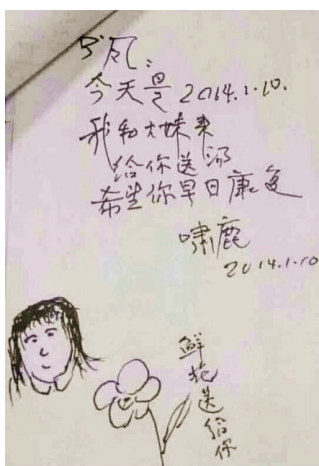 风:
今天是2014.1.10.
我和大妹来
给你送汤
希望你早日康复
啸鹿
2014.1.10
鲜花送给你